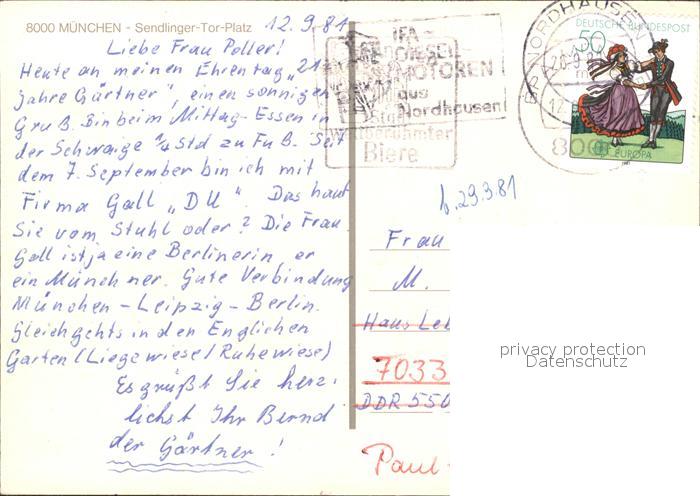 8000 MÜNCHEN - Sendlinger-Tor-Platz
12.9.81
Liebe Frau Poller!
Heute an meinen Ehrentag „21
Jahre Gärtner", einen sonnigen
Gruß. Bin beim Mittag-Essen in
der Schwaige 1/4 Std zu Fuß. Seit
dem 7. September bin ich mit
Firma Gall „DU". Das haut
Sie vom Stuhl oder? Die Frau
Gall ist ja eine Berlinerin er
ein Münchner. Gute Verbindung
München - Leipzig - Berlin.
Gleich gehts in den Englichen
Garten (Liegewiese/Ruhewiese)
Es grüßt Sie herz-
lichst Ihr Bernd
der Gärtner!
IFA
DIESEL
MOTOREN
aus
Nordhausen
weltberühmter
Biere
NORDHAUSEN
DEUTSCHE BUNDESPOST
50
EUROPA
800
b. 29.9.81
Frau
M.
Haus
7033
DDR 550
Paul
privacy protection
Datenschutz